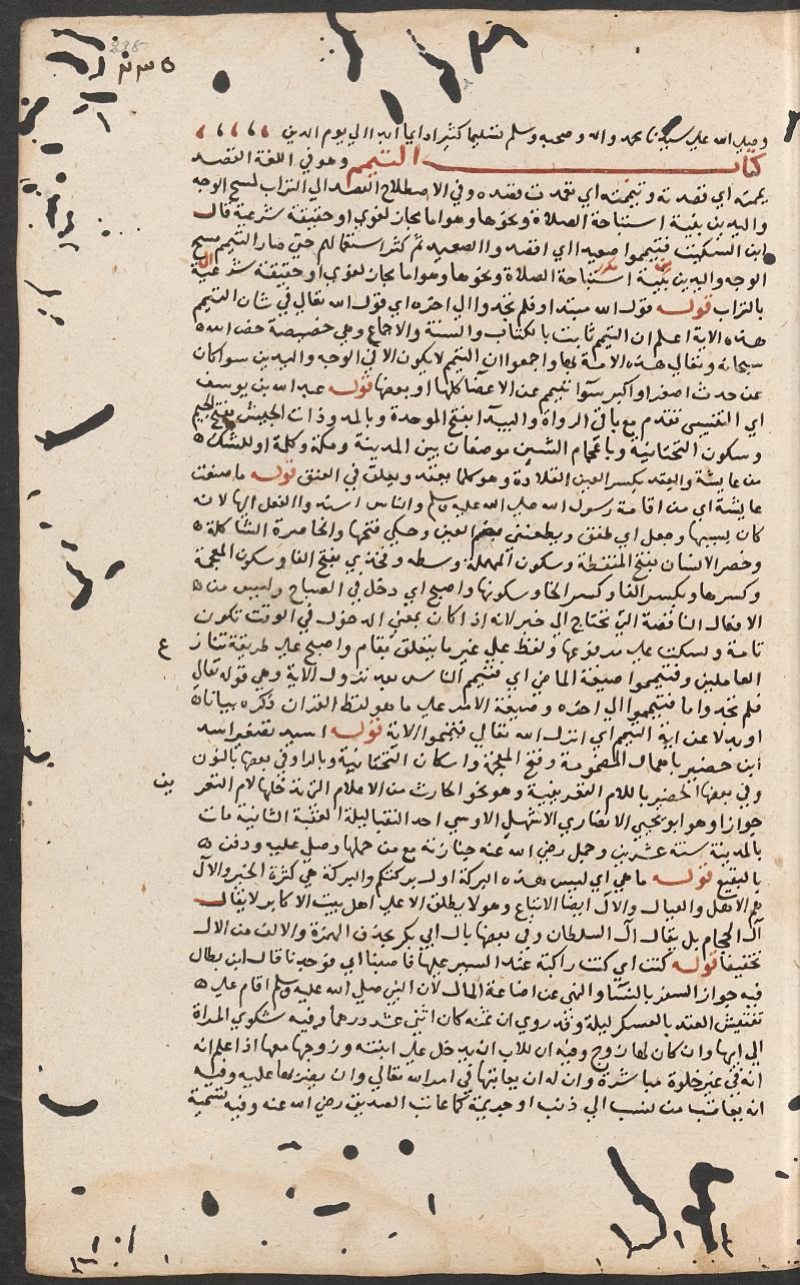 ٢٣٥
وصلى الله على سيدنا محمد واله وصحبه وسلم تسليما كثيرا دايما ابدا الى يوم الدين
كتاب التيمم وهو في اللغة القصد
يممته اي قصدته وتيممته اي تعمدت قصده وفي الاصطلاح القصد الى التراب لمسح الوجه
واليدين بنية استباحة الصلاة ونحوها وهو اما مجاز لغوي او حقيقة شرعية قال
ابن السكيت فتيمموا صعيدا اي اقصدوا الصعيد ثم كثر استعمالهم حتى صار التيمم مسح
الوجه واليدين بنية استباحة الصلاة ونحوها وهو اما مجاز لغوي او حقيقة شرعية
بالتراب قوله قول الله مبتدا وفلم تجدوا الى اخره اي قول الله تعالى في شان التيمم
هذه الاية اعلم ان التيمم ثابت بالكتاب والسنة والاجماع وهي خصيصة خص الله
سبحانه وتعالى هذه الامة بها واجمعوا ان التيمم لا يكون الا في الوجه واليدين سوا كان
عن حدث اصغر او اكبر سوا تيمم عن الاعضا كلها او بعضها قوله عبد الله بن يوسف
اي التنيسي تقدم مع باقي الرواة والبيدا بفتح الموحدة وبالمد وذات الجيش بفتح الجيم
وسكون التحتانية وباعجام الشين موضعان بين المدينة ومكة وكلمة او للشك
من عايشة والعقد بكسر العين القلادة وهو كلما يعقد ويعلق في العنق قوله ما صنعت
عايشة اي من اقامة رسول الله صلى الله عليه وسلم والناس اسند الفعل اليها لانه
كان بسببها وجعل اي طفق ويطعنني بضم العين وحكي فتحها والخاصرة الشاكلة
وخصر الانسان بفتح المنقطة وسكون المهملة وسطه وفخذي بفتح الفا وسكون المعجمة
وكسرها وبكسر الفا وكسر الخا وسكونها واصبح اي دخل في الصباح وليس من
الافعال الناقصة التي تحتاج الى خبر لانه اذا كان بمعنى الدخول في الوقت تكون
تامة وتسكت على مرفوعها ولفظ على غير ما يتعلق بقام واصبح على طريقة تناز
ع
العاملين وفتيمموا صيغة الماضي اي فتيمم الناس بعد نزول الاية وهي قوله تعالى
فلم تجدوا ما فتيمموا الى اخره وصيغة الامر على ما هو لفظ القران ذكره بيانا
او بدلا عن اية التيمم اي انزل الله تعالى فتيمموا الاية قوله اسيد تصغير اسد
ابن حضير باهمال المضمومة وفتح المعجمة واسكان التحتانية وبالرا وفي بعضها بالنون
وفي بعضها الحضير باللام التعريفية وهو نحو الحارث من الاعلام التي تدخلها لام التعر
يف
جوازا وهو ابو يحيى الانصاري الاشهلي الاوسي احد النقبا ليلة العقبة الثانية مات
بالمدينة سنة عشرين وحمل رضي الله عنه جنازته مع من حملها وصلى عليه ودفن
بالبقيع قوله ما هي اي ليس هذه البركة اول بركتكم والبركة هي كثرة الخير والآل
هم الاهل والعيال والآل ايضا الاتباع وهو لا يطلق الا على اهل بيت الاكابر لا يقال
آل الحجام بل يقال آل السلطان وفي بعضها يال ابي بكر بحذف الهمزة والالف من الال
تخفيفا قوله كنت اي كنت راكبة عند السير عليها فاصبنا اي فوجدنا قال ابن بطال
فيه جواز السفر بالنسا والنهي عن اضاعة المال لان النبي صلى الله عليه وسلم اقام على
تفتيش العقد بالعسكر ليلة وقد روي ان ثمنه كان اثني عشر درهما وفيه شكوى المراة
الى ابيها وان كان لها زوج وفيه ان للاب ان يدخل على ابنته وزوجها معها اذا علم انه
انه في غير خلوة مباشرة وان له ان يعاتبها في امر الله تعالى وان يضربها عليه وفيه
انه يعاتب من نسب الى ذنب او جريمة كما عاتب الصديق رضي الله عنه وفيه تسمية